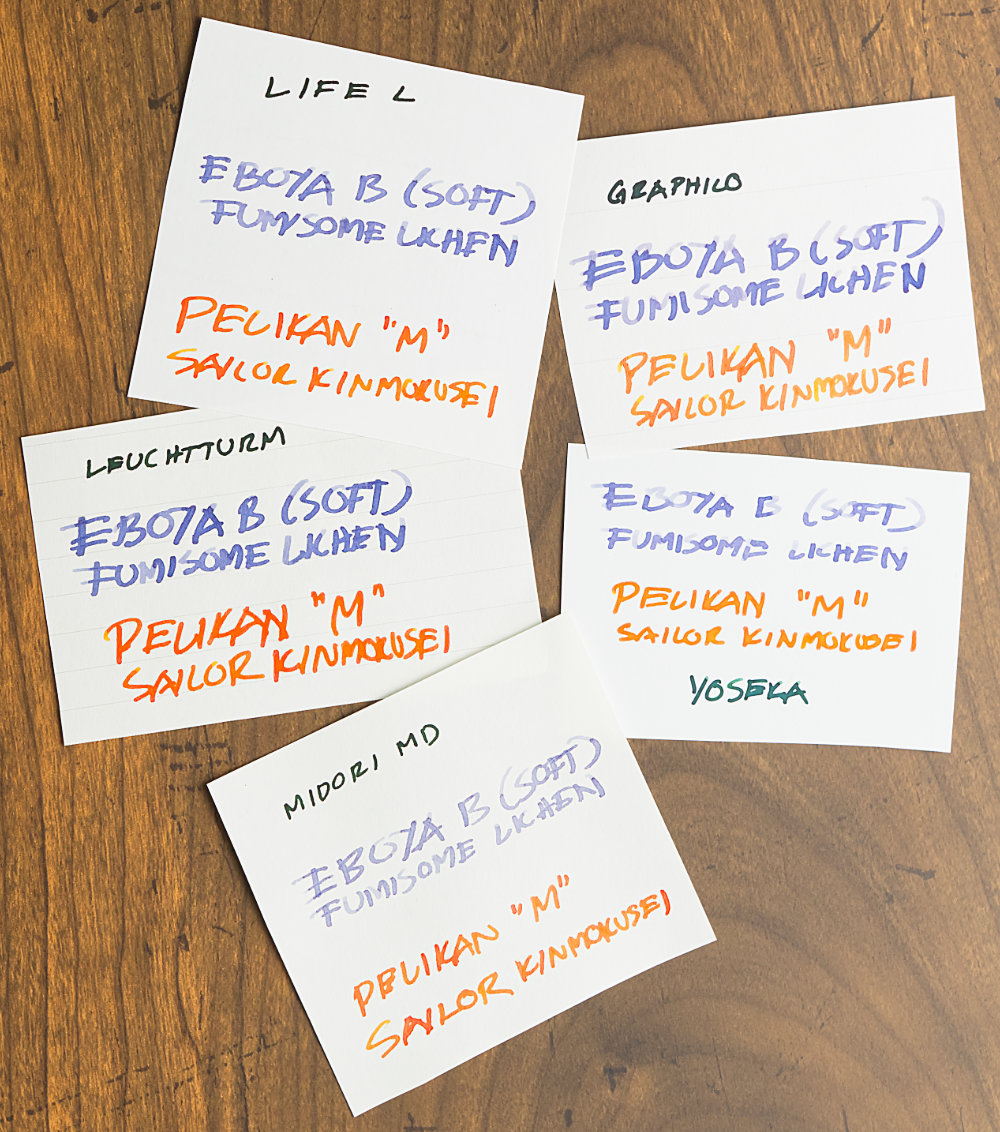 LIFE L
EBOYA B (SOFT)
FUMISOME LICHEN
PELIKAN "M"
SAILOR KINMOKUSEI
GRAPHILO
EBOYA B (SOFT)
FUMISOME LICHEN
PELIKAN "M"
SAILOR KINMOKUSEI
LEUCHTTURM
EBOYA B (SOFT)
FUMISOME LICHEN
PELIKAN "M"
SAILOR KINMOKUSEI
EBOYA B (SOFT)
FUMISOME LICHEN
PELIKAN "M"
SAILOR KINMOKUSEI
YOSEKA
MIDORI MD
EBOYA B (SOFT)
FUMISOME LICHEN
PELIKAN "M"
SAILOR KINMOKUSEI